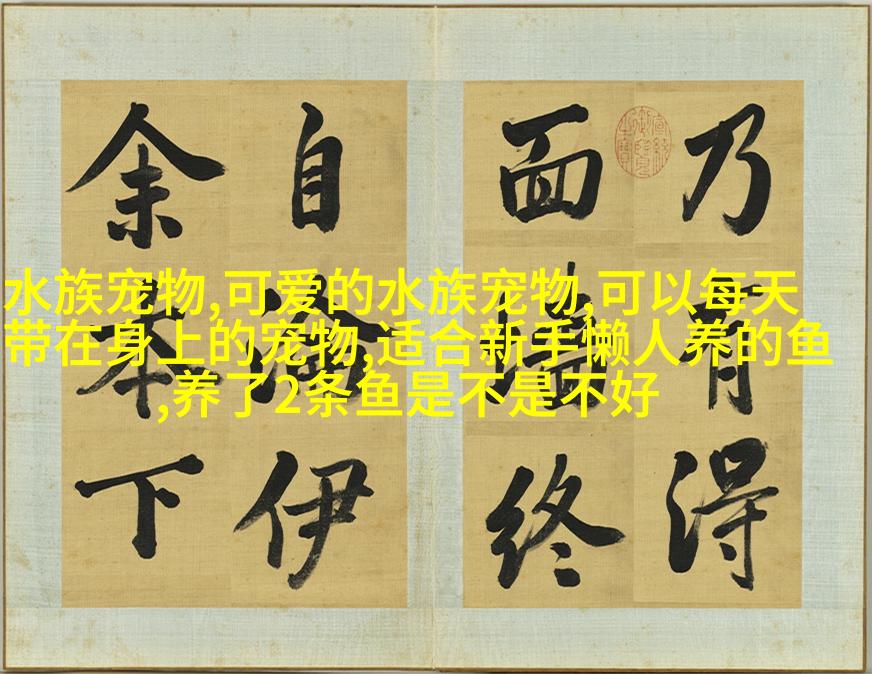 水族宠物,可爱的水族宠物,可以每天
带在身上的宠物,适合新手懒人养的鱼
,养了2条鱼是不是不好
乃有得
面终
自伊
余本下